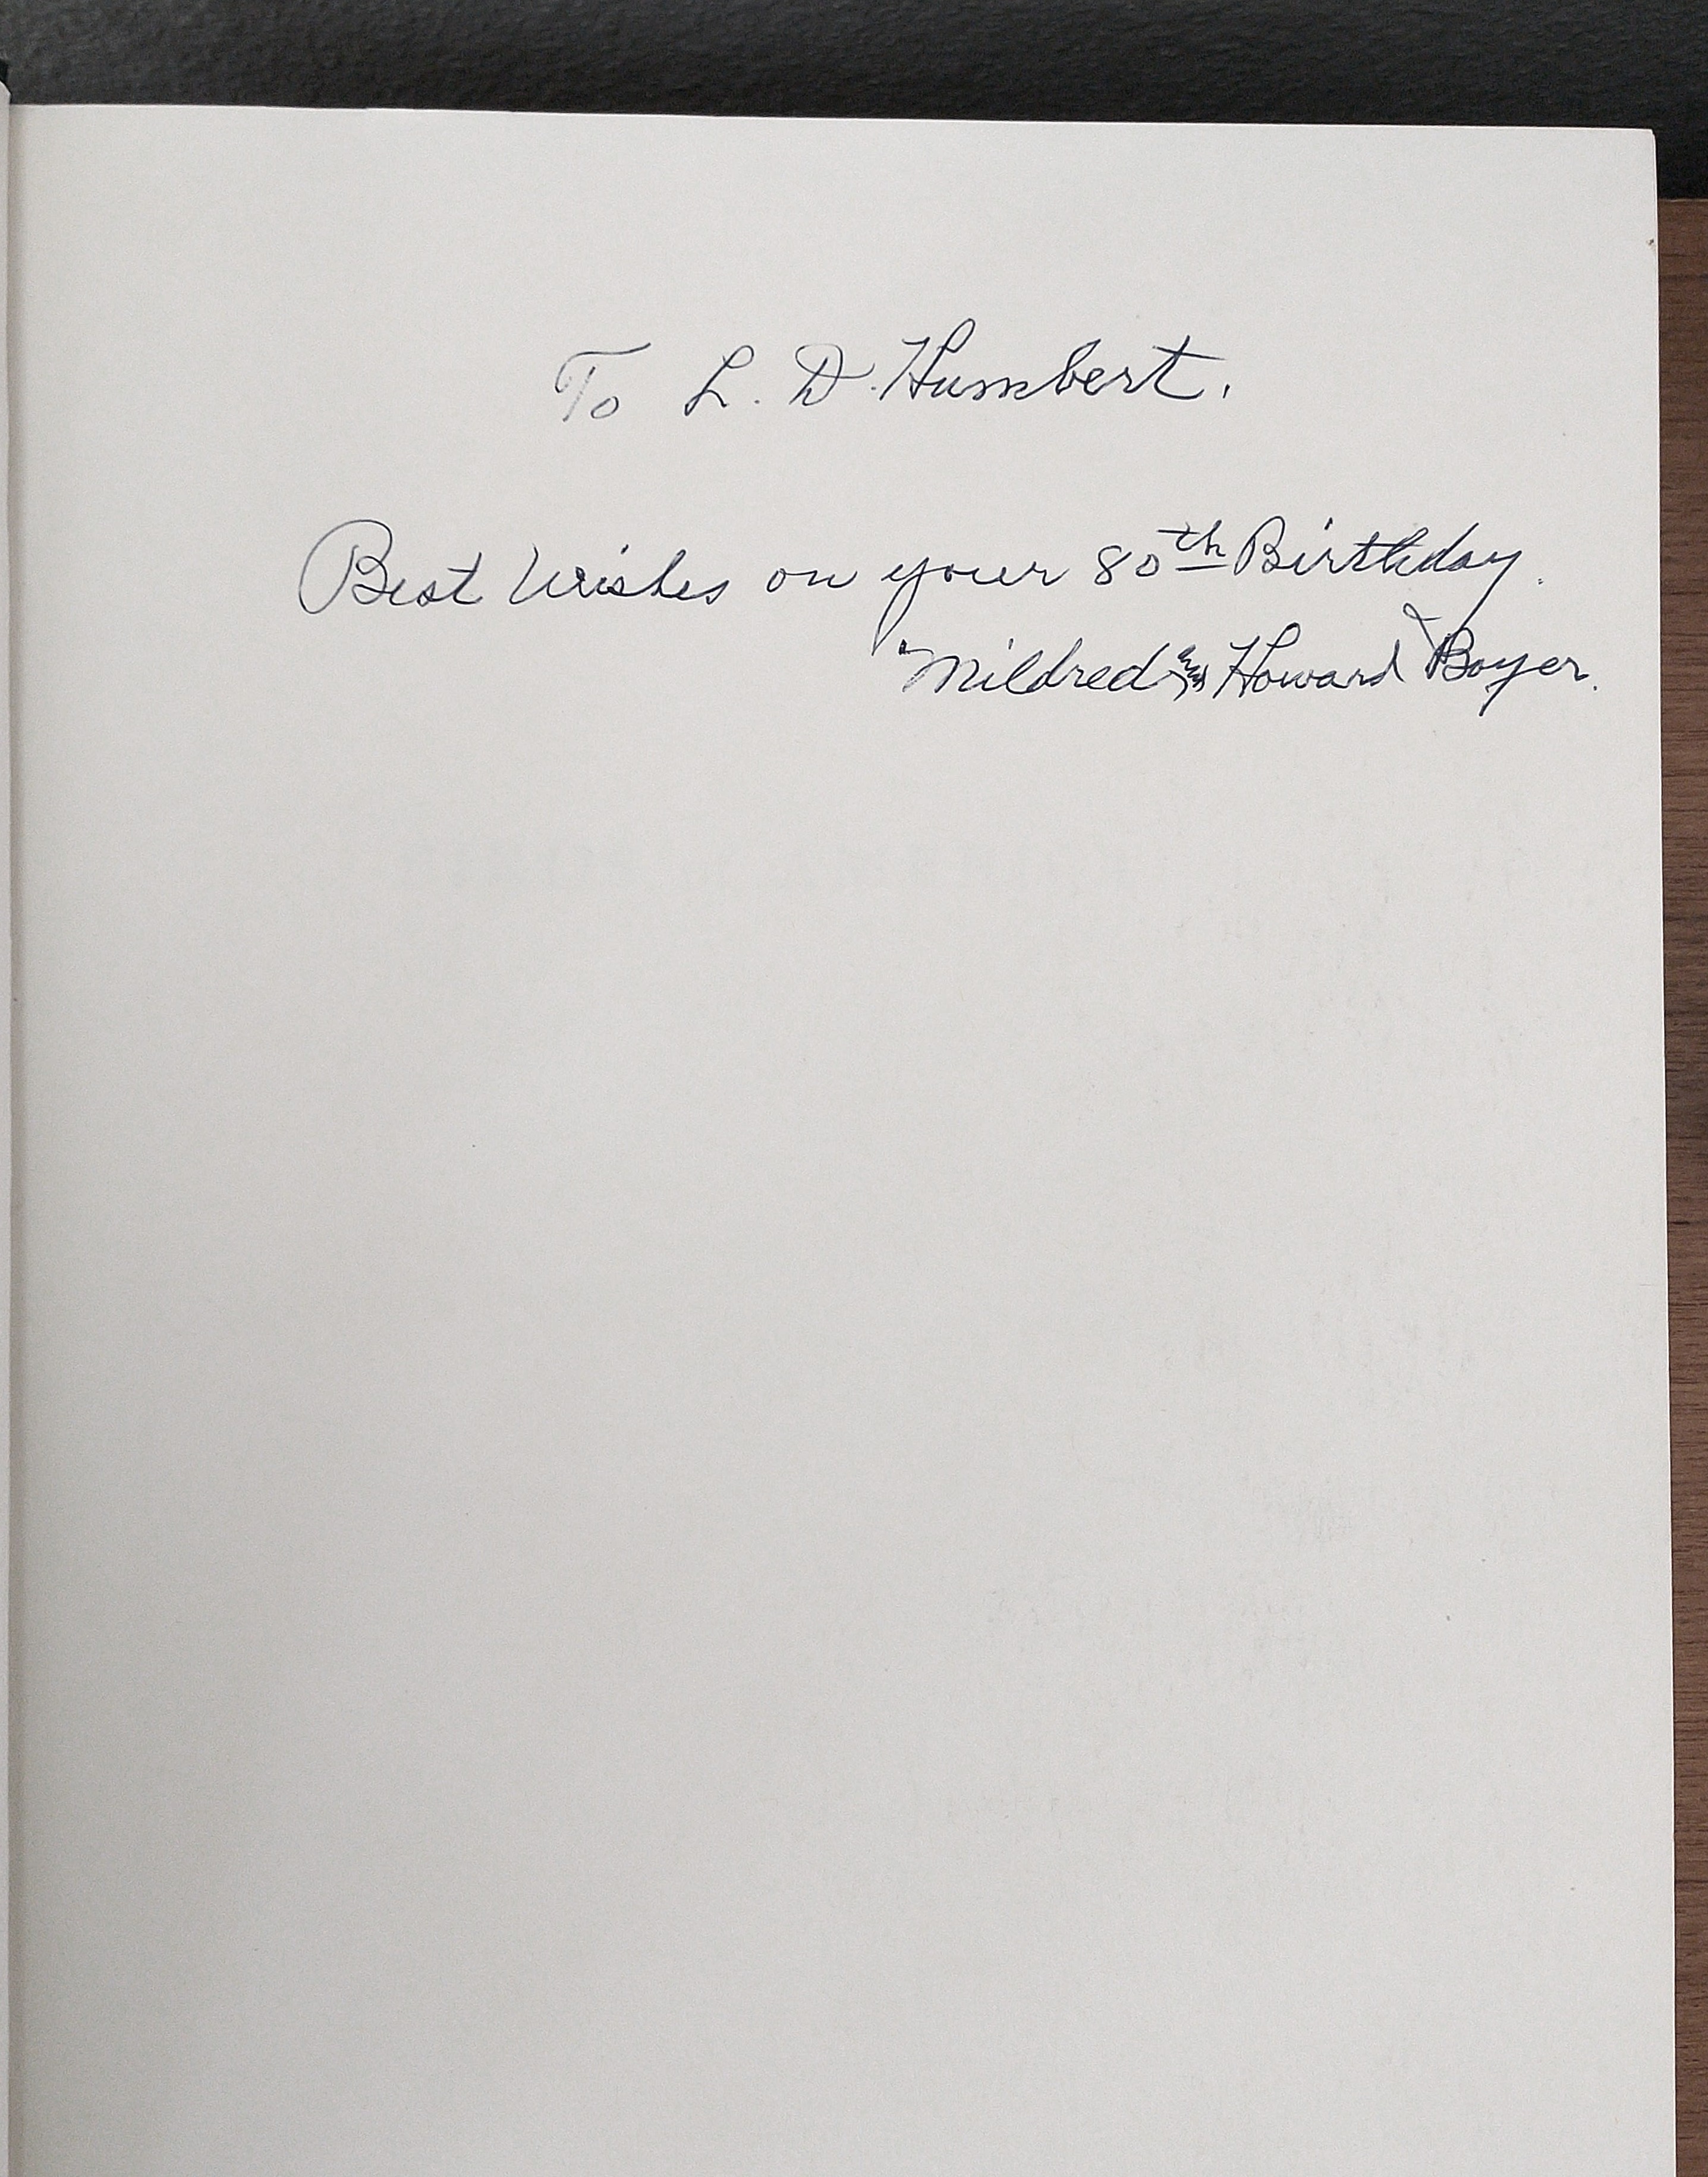 To L. D. Humbert.
Best Wishes on your 80th Birthday.
Mildred & Howard Boyer.